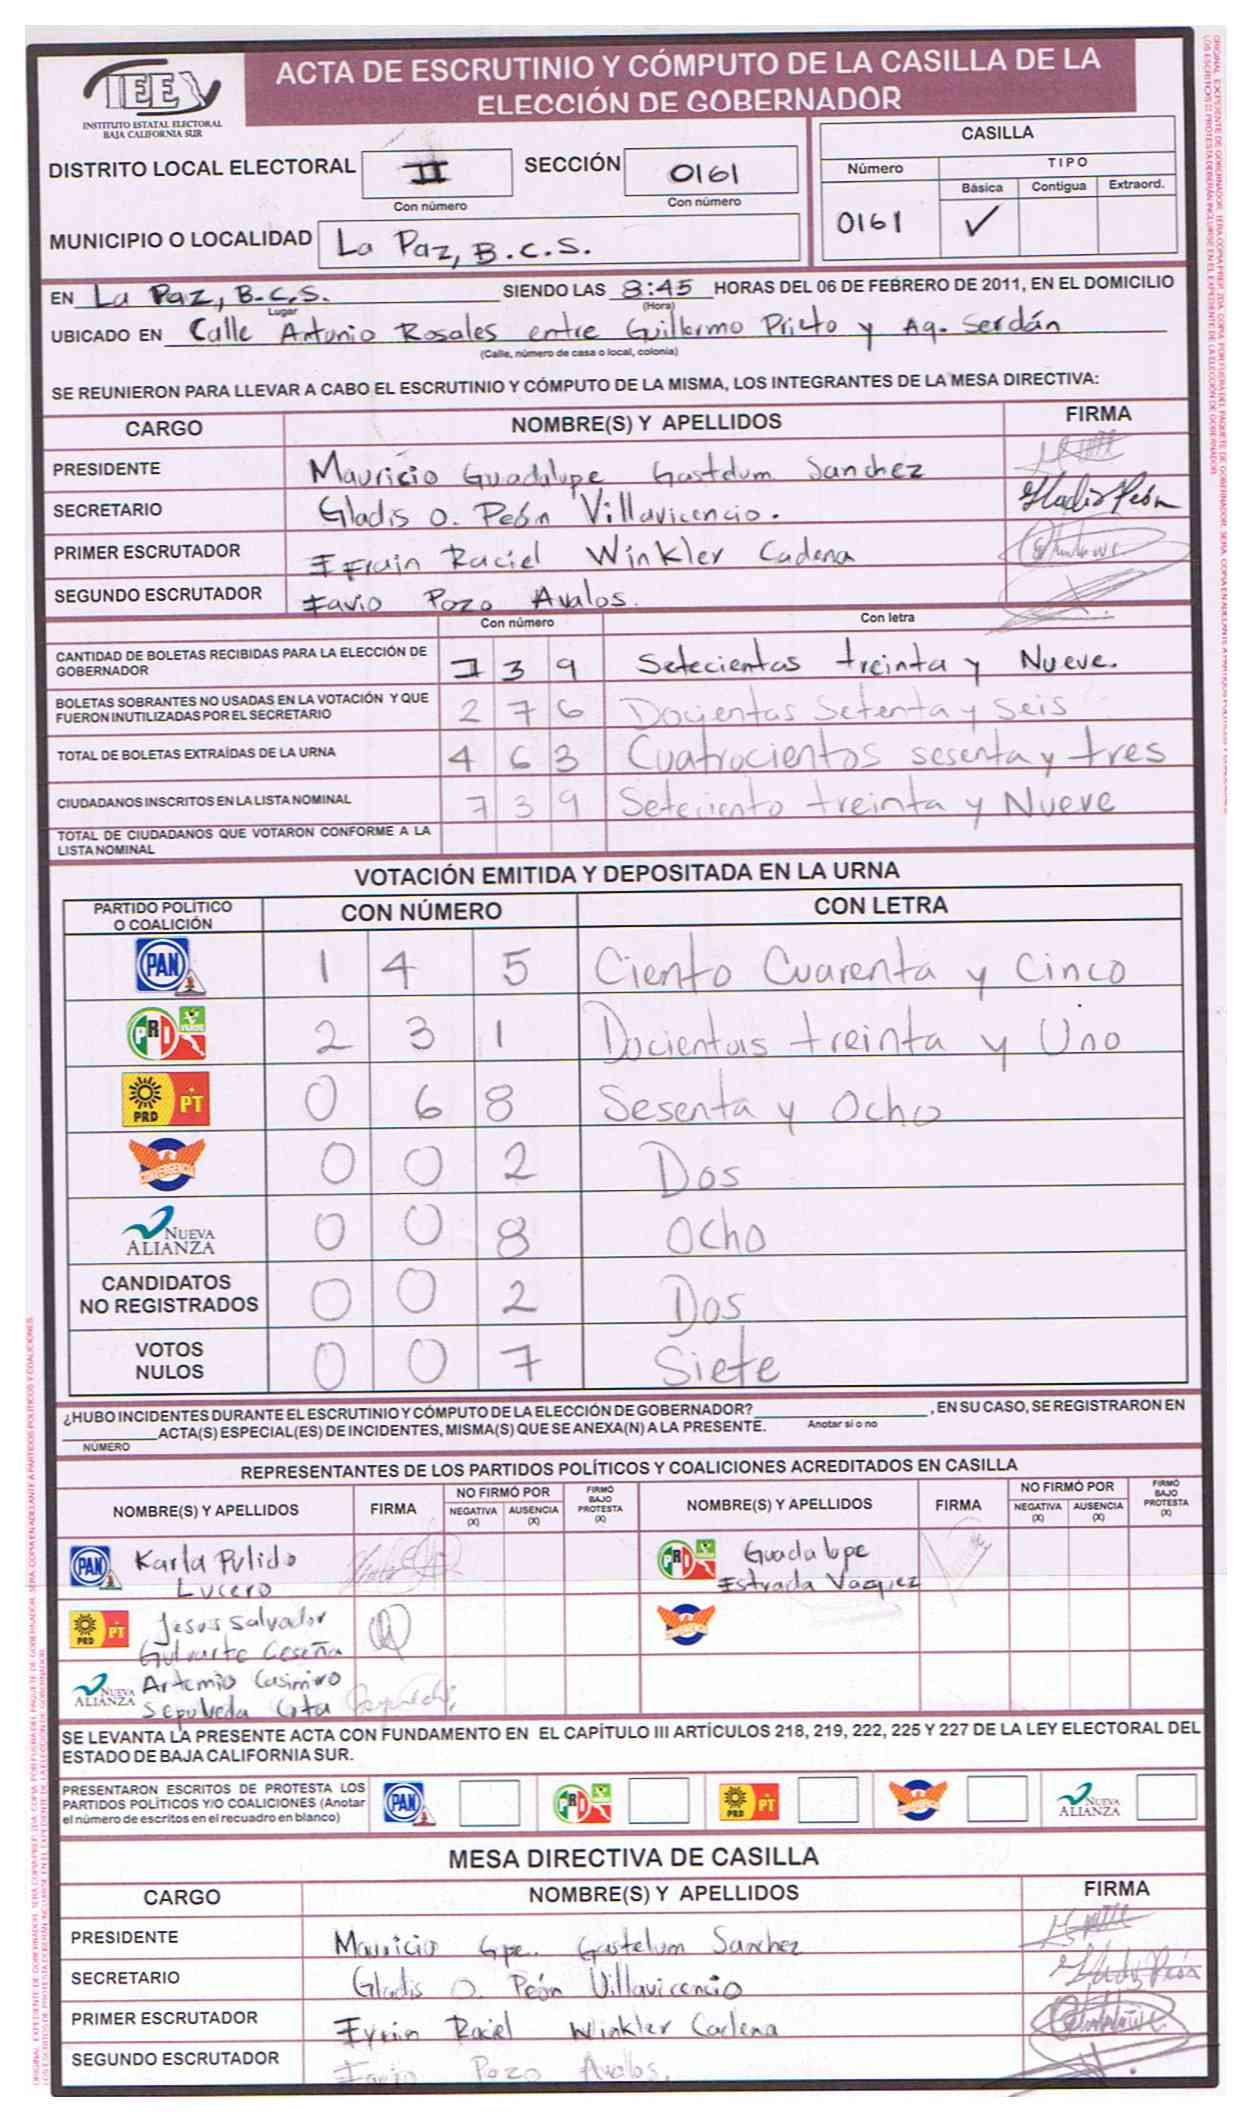 ACTA DE ESCRUTINIO Y CÓMPUTO DE LA CASILLA DE LA
ELECCIÓN DE GOBERNADOR
INSTITUTO ESTATAL ELECTORAL
BAJA CALIFORNIA SUR
DISTRITO LOCAL ELECTORAL II SECCIÓN 0161
Con número Con número
CASILLA
Número TIPO
Básica Contigua Extraord.
0161 ✓
MUNICIPIO O LOCALIDAD La Paz, B.C.S.
EN La Paz, B.C.S. SIENDO LAS 8:45 HORAS DEL 06 DE FEBRERO DE 2011, EN EL DOMICILIO
Lugar (Hora)
UBICADO EN Calle Antonio Rosales entre Guillermo Prieto y Aq. Serdán
(Calle, número de casa o local, colonia)
SE REUNIERON PARA LLEVAR A CABO EL ESCRUTINIO Y CÓMPUTO DE LA MISMA, LOS INTEGRANTES DE LA MESA DIRECTIVA:
CARGO NOMBRE(S) Y APELLIDOS FIRMA
PRESIDENTE Mauricio Guadalupe Gastelum Sanchez
SECRETARIO Gladis O. Peón Villavicencio. Gladis Peón
PRIMER ESCRUTADOR Efrain Raciel Winkler Cadena
SEGUNDO ESCRUTADOR Favio Pozo Avalos.
Con número Con letra
CANTIDAD DE BOLETAS RECIBIDAS PARA LA ELECCIÓN DE
GOBERNADOR 7 3 9 Setecientas treinta y Nueve.
BOLETAS SOBRANTES NO USADAS EN LA VOTACIÓN Y QUE
FUERON INUTILIZADAS POR EL SECRETARIO 2 7 6 Docientas Setenta y Seis
TOTAL DE BOLETAS EXTRAÍDAS DE LA URNA 4 6 3 Cuatrocientos sesenta y tres
CIUDADANOS INSCRITOS EN LA LISTA NOMINAL 7 3 9 Seteciento treinta y Nueve
TOTAL DE CIUDADANOS QUE VOTARON CONFORME A LA
LISTA NOMINAL
VOTACIÓN EMITIDA Y DEPOSITADA EN LA URNA
PARTIDO POLÍTICO
O COALICIÓN CON NÚMERO CON LETRA
PAN 1 4 5 Ciento Cuarenta y Cinco
PRI VERDE 2 3 1 Docientas treinta y Uno
PRD PT 0 6 8 Sesenta y Ocho
CONVERGENCIA 0 0 2 Dos
NUEVA ALIANZA 0 0 8 Ocho
CANDIDATOS
NO REGISTRADOS 0 0 2 Dos
VOTOS
NULOS 0 0 7 Siete
¿HUBO INCIDENTES DURANTE EL ESCRUTINIO Y CÓMPUTO DE LA ELECCIÓN DE GOBERNADOR? , EN SU CASO, SE REGISTRARON EN
Anotar si o no
ACTA(S) ESPECIAL(ES) DE INCIDENTES, MISMA(S) QUE SE ANEXA(N) A LA PRESENTE.
NÚMERO
REPRESENTANTES DE LOS PARTIDOS POLÍTICOS Y COALICIONES ACREDITADOS EN CASILLA
NOMBRE(S) Y APELLIDOS FIRMA NO FIRMÓ POR NEGATIVA (X) AUSENCIA (X) FIRMÓ BAJO PROTESTA (X) NOMBRE(S) Y APELLIDOS FIRMA NO FIRMÓ POR NEGATIVA (X) AUSENCIA (X) FIRMÓ BAJO PROTESTA (X)
PAN Karla Pulido PRI Guadalupe
Lucero Estrada Vazquez
PRD PT Jesus Salvador
Ceseña
NUEVA ALIANZA Artemio Casimiro
Sepulveda Cota
SE LEVANTA LA PRESENTE ACTA CON FUNDAMENTO EN EL CAPÍTULO III ARTÍCULOS 218, 219, 222, 225 Y 227 DE LA LEY ELECTORAL DEL
ESTADO DE BAJA CALIFORNIA SUR.
PRESENTARON ESCRITOS DE PROTESTA LOS
PARTIDOS POLÍTICOS Y/O COALICIONES (Anotar
el número de escritos en el recuadro en blanco)
PAN PRI PRD PT NUEVA ALIANZA
MESA DIRECTIVA DE CASILLA
CARGO NOMBRE(S) Y APELLIDOS FIRMA
PRESIDENTE Mauricio Gpe. Gastelum Sanchez
SECRETARIO Gladis O. Peón Villavicencio Gladis Peón
PRIMER ESCRUTADOR Efrain Raciel Winkler Cadena
SEGUNDO ESCRUTADOR Favio Pozo Avalos.